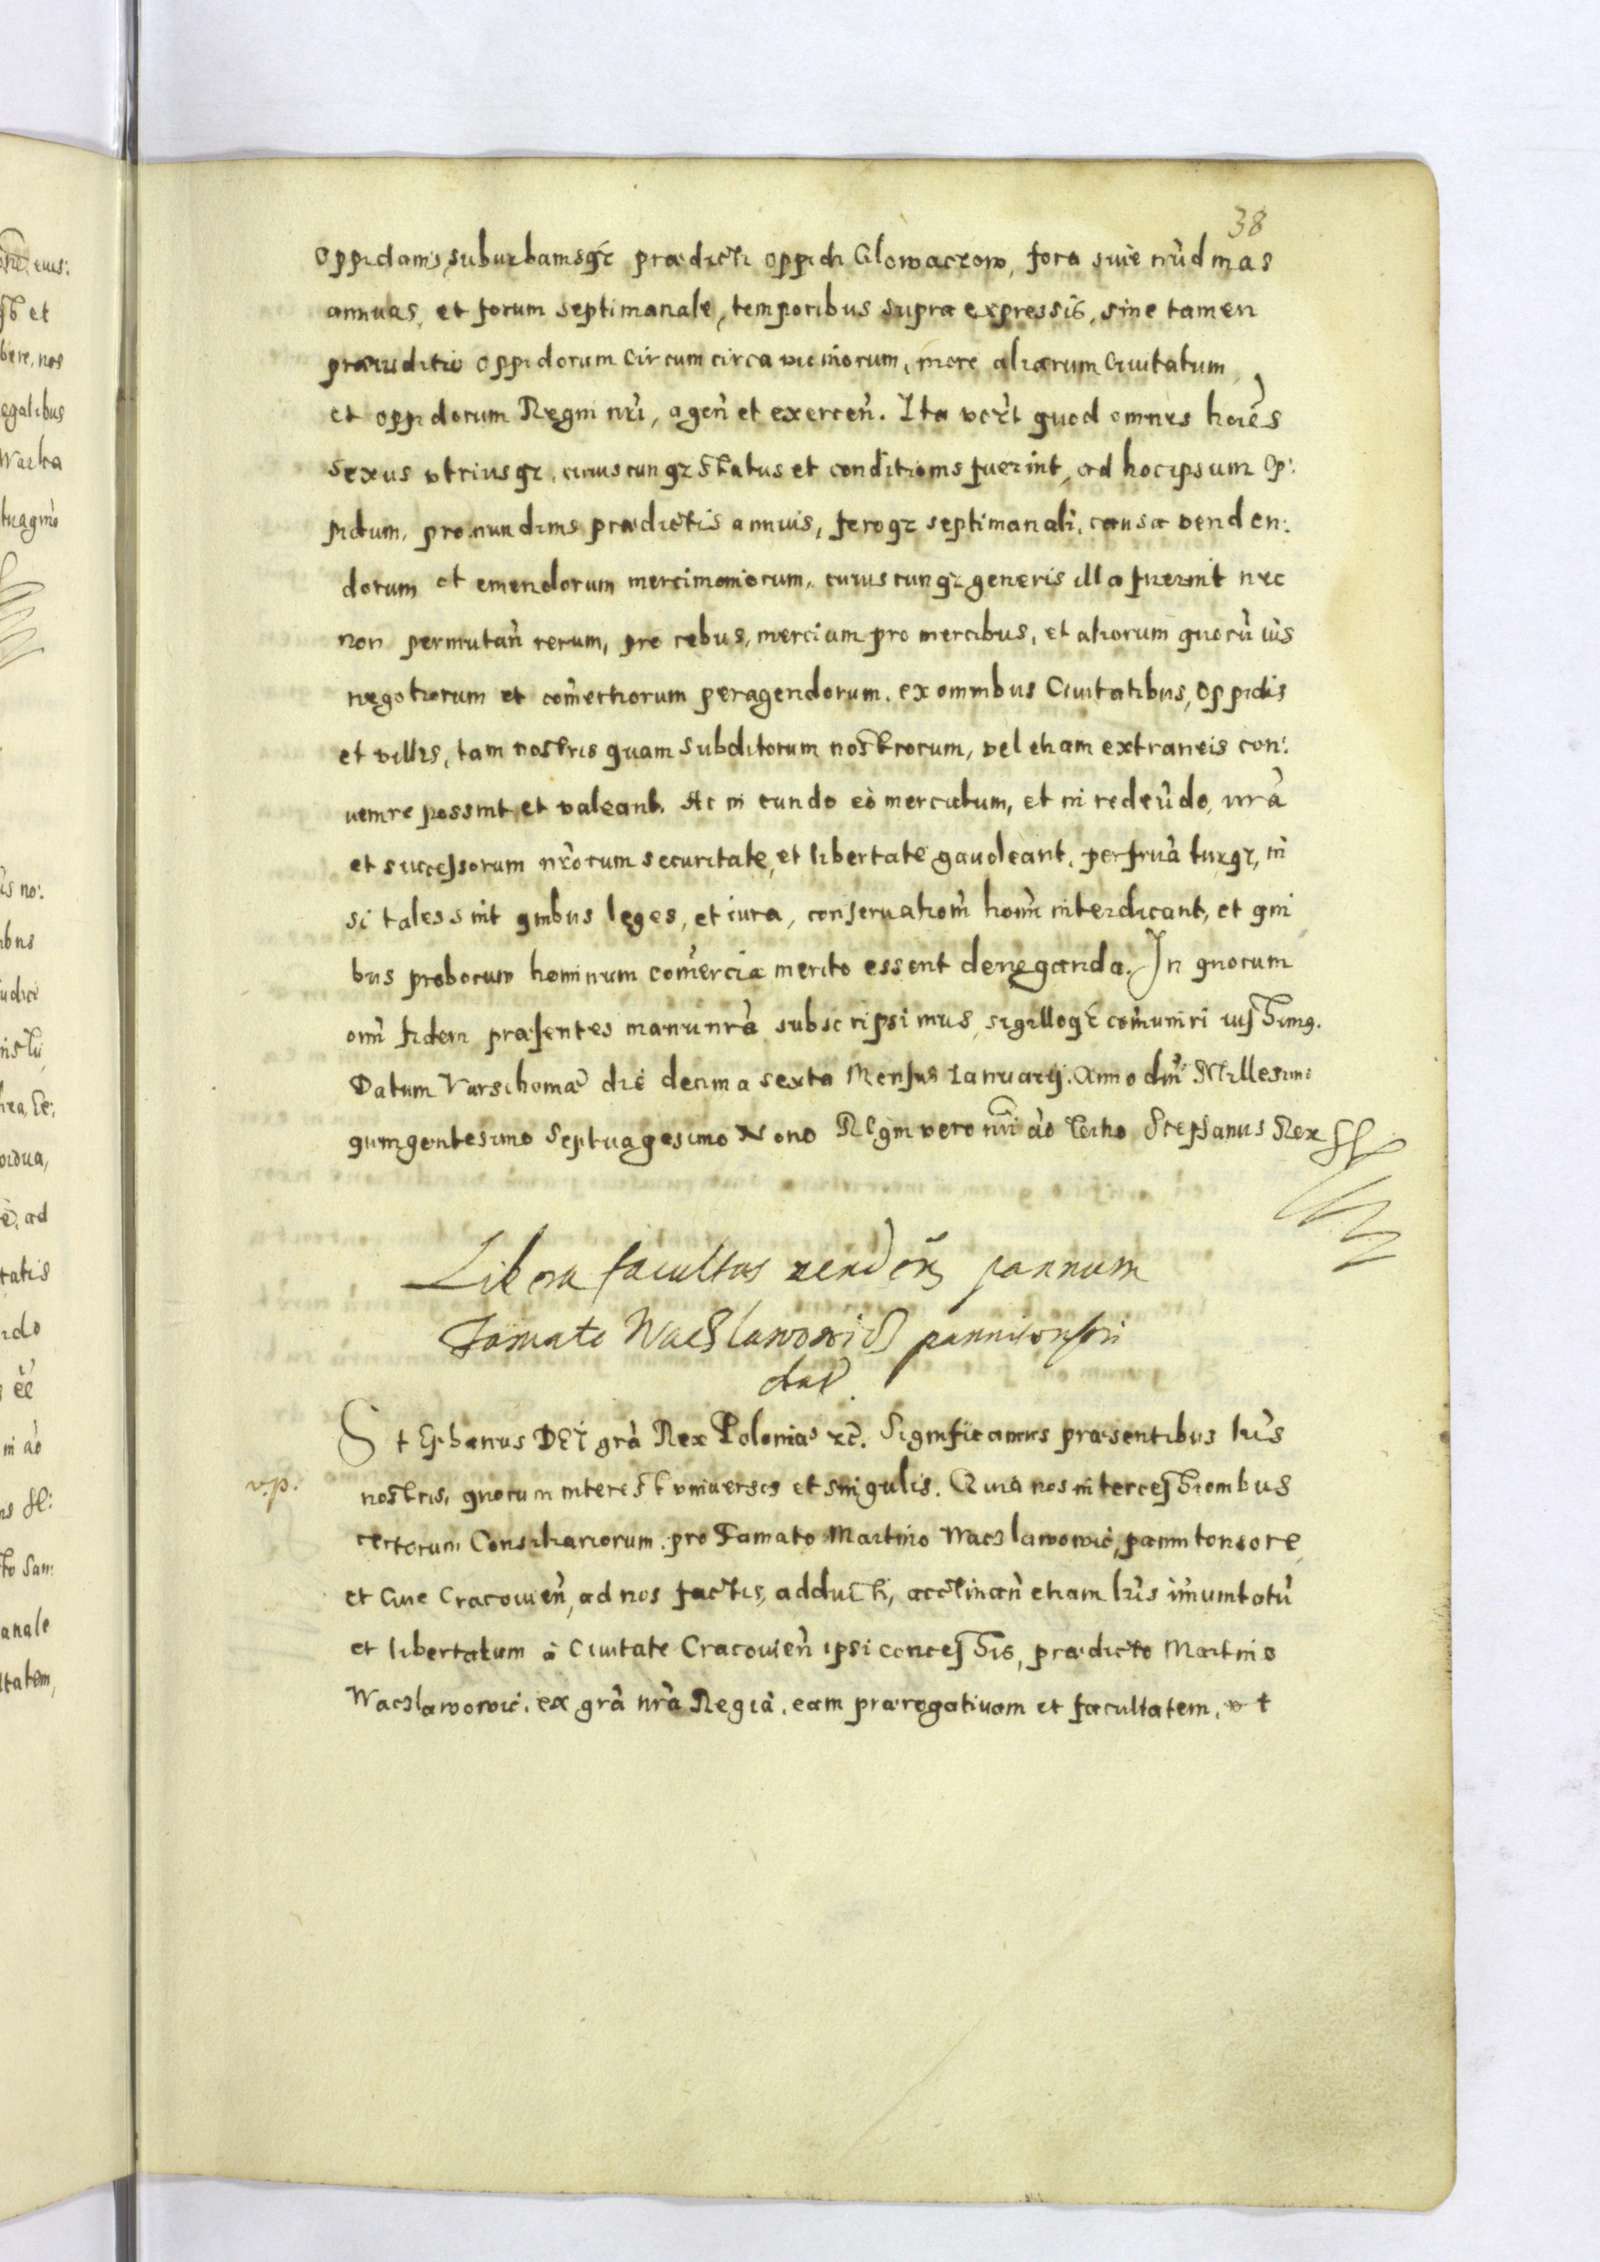 38
oppidanis, suburbanisqz prædicti oppidi Glowaczow, fora siue nūdinas
annuas, et forum septimanale, temporibus supra expressis, sine tamen
præiuditio oppidorum circumcirca vicinorum, more aliarum Ciuitatum
et oppidorum Regni nr̄i, agen̄ et exercen̄. Ita vt quod omnes hoīes
sexus vtriusqz, cuiuscunqz status et conditionis fuerint, ad hoc ipsum Op:
pidum, pro nundinis prædictis annuis, foroqz septimanali, causa venden:
dorum et emendorum mercimoniorum, cuiuscunqz generis illa fuerint nec
non permutan̄ rerum, pro rebus, merciam pro mercibus, et aliorum quorū uis
negotiorum et com̄ertiorum peragendorum, ex omnibus Ciuitatibus, Oppidis
et villis, tam nostris quam subditorum nostrorum, vel etiam extraneis con:
uenire possint et valeant. Ac in eundo eò mercatum, et in redeūdo, nr̄a
et successorum nr̄orum securitate, et libertate gaudeant, perfruāturqz, ni
si tales sint quibus leges, et iura, conseruatiom̄ hoim̄ interdicant, et qui
bus proborum hominum com̄ercia merito essent deneganda. In quorum
om̄ fidem præsentes manu nr̄a subscripsimus, sigilloqz com̄uniri iussimus.
Datum Varschoniæ die decima sexta Mensis Ianuarij. Anno dn̄i Millesimo
quingentesimo Septuagesimo Nono Regni vero nr̄i āo tertio Stephanus Rex
Libera facultas vendēn pannum
Famato Waczlawowicz pannitonsori
dat̄.
Stephanus DEI grā Rex Poloniæ etc. Significamus præsentibus lr̄is
v.p.
nostris, quorum interest vniuersis et singulis. Quia nos intercessionibus
certorum Consiliariorum pro Famato Martino Waczlawowic, pannitonsore
et Ciue Cracouien̄, ad nos factis, adducti, acclinan̄ etiam lr̄is im̄unitatū
et libertatum à Ciuitate Cracouien̄ ipsi concessis, prædicto Martino
Waczlawowic, ex grā nr̄a Regia, eam prærogatiuam et facultatem, vt